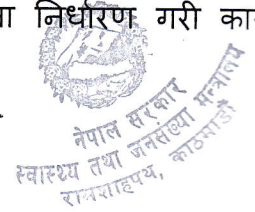 निर्धारण गरी
नेपाल सरकार
स्वास्थ्य तथा जनसंख्या मन्त्रालय
रामशाहपथ, काठमाडौं